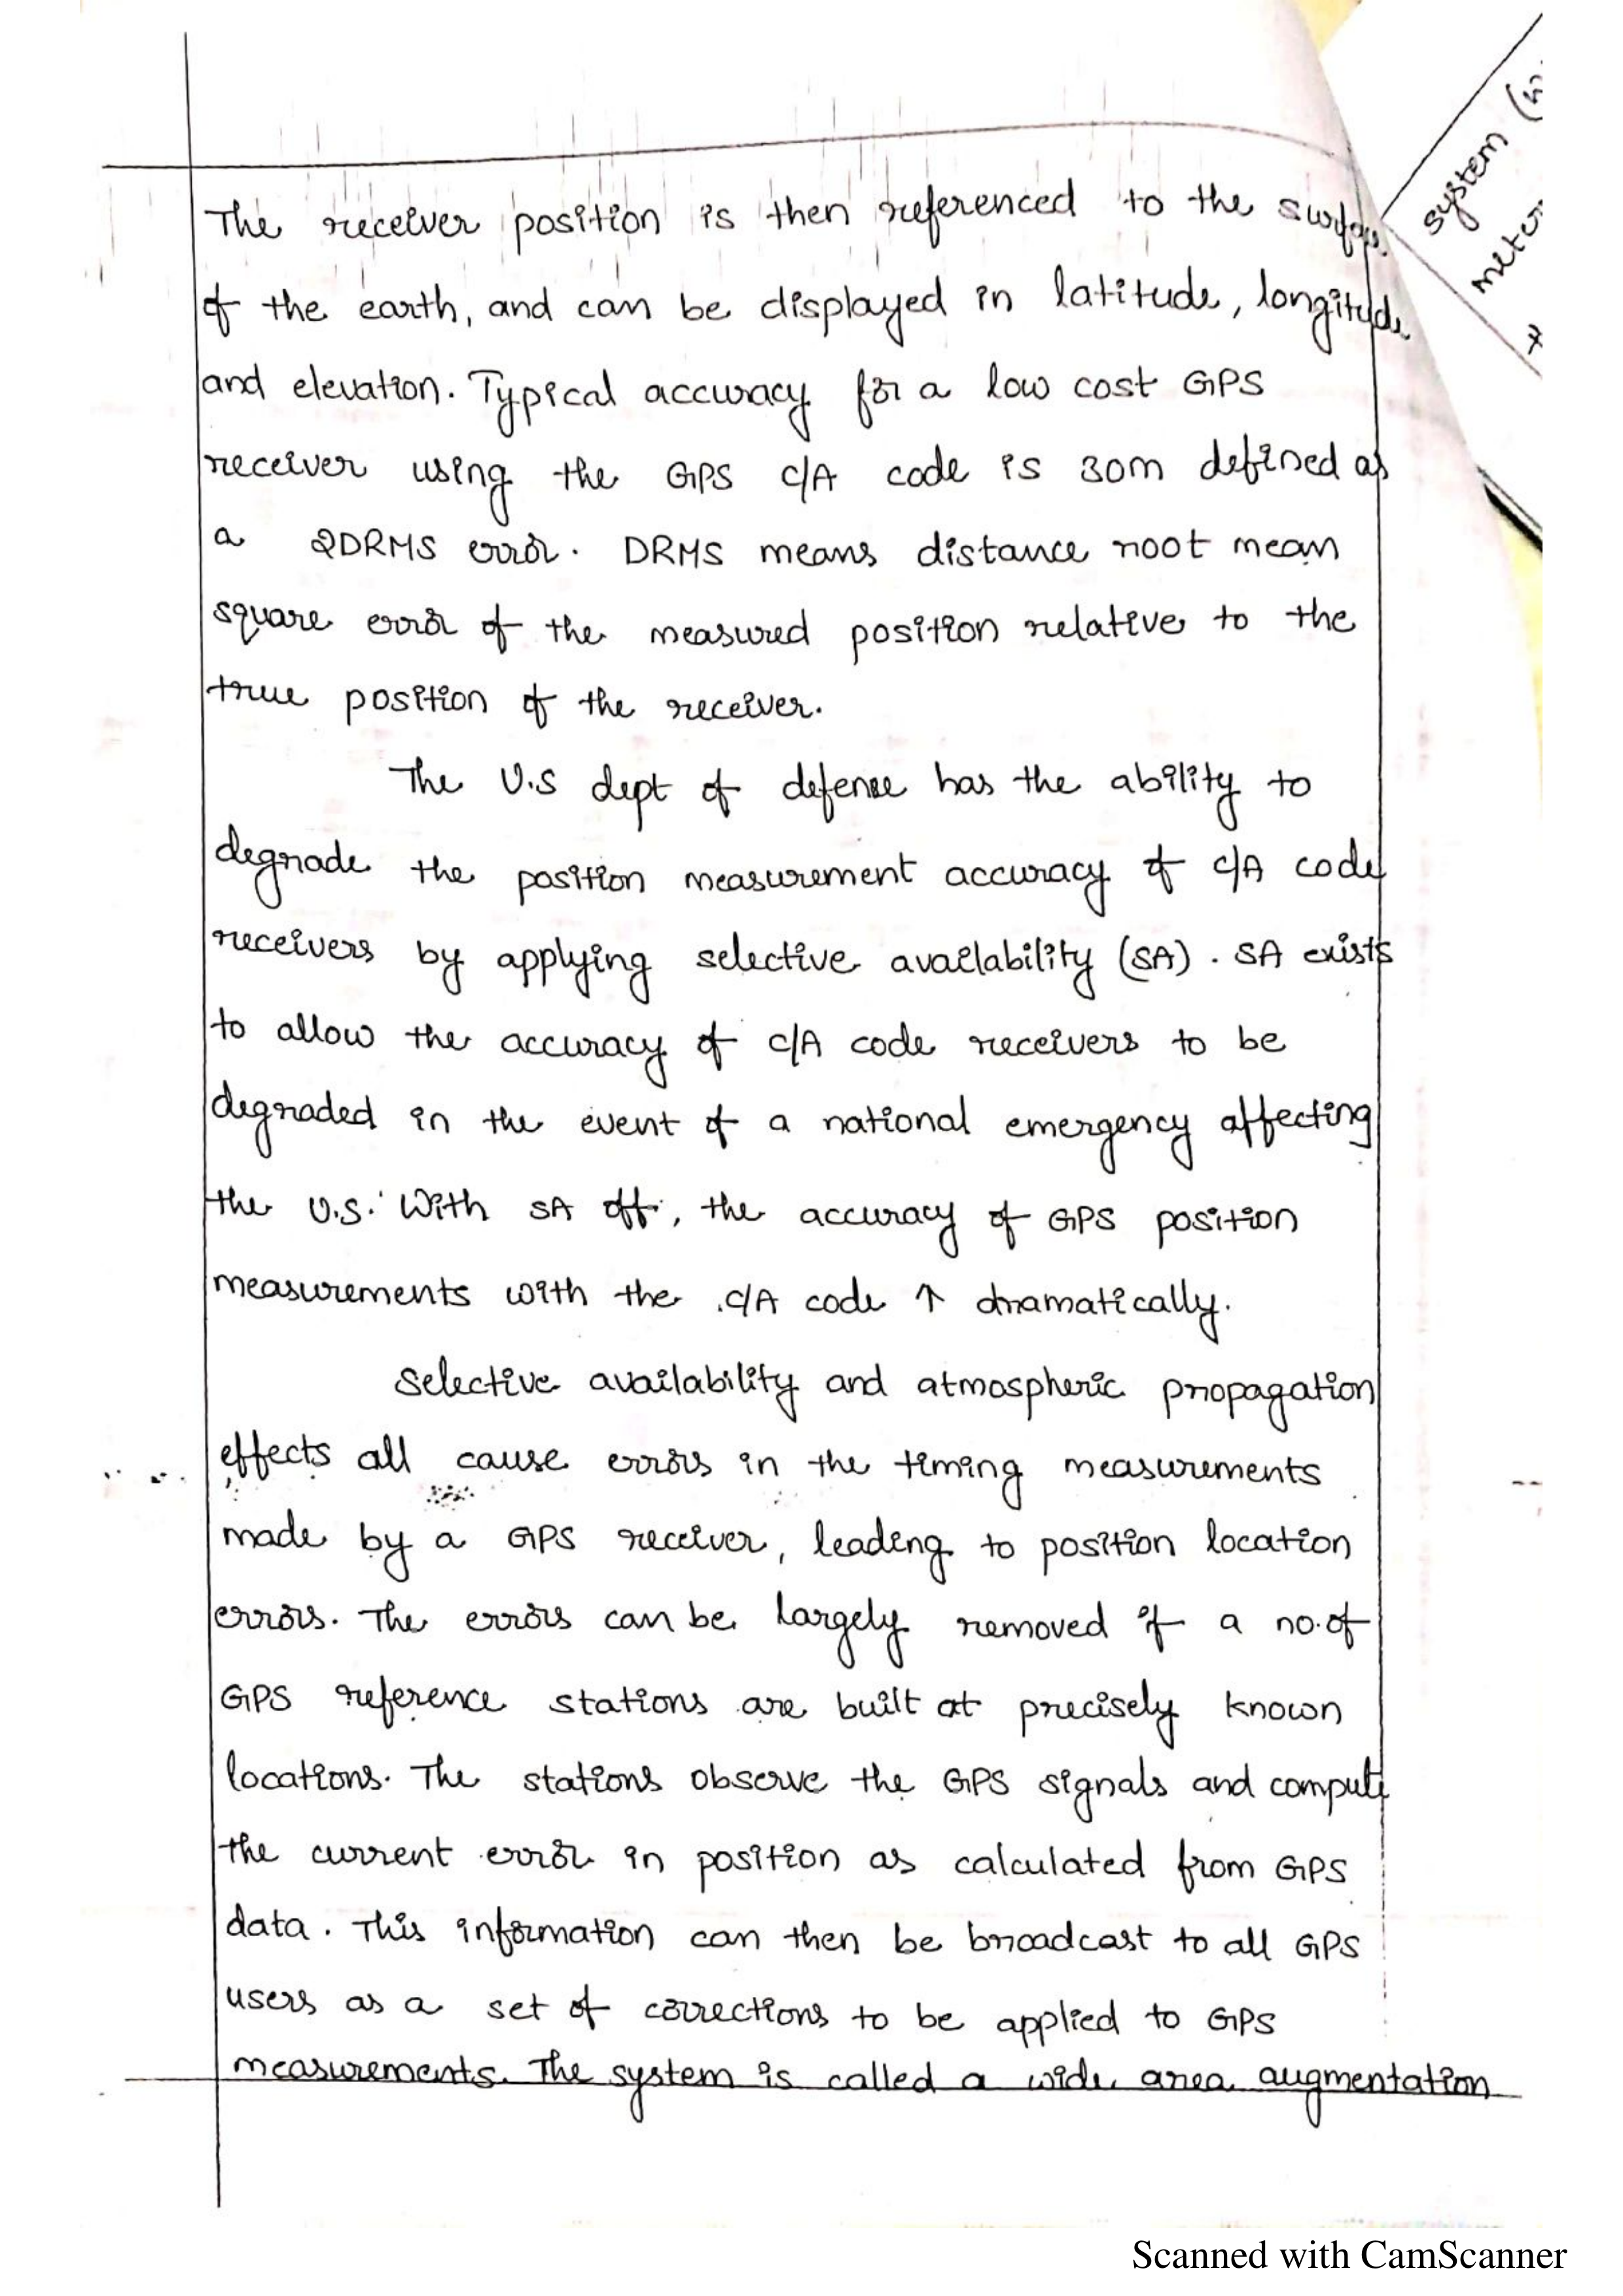 The receiver position is then referenced to the surface
of the earth, and can be displayed in latitude, longitude
and elevation. Typical accuracy for a low cost GPS
receiver using the GPS C/A code is 30m defined as
a 2DRMS error. DRMS means distance root mean
square error of the measured position relative to the
true position of the receiver.
The U.S dept of defense has the ability to
degrade the position measurement accuracy of C/A code
receivers by applying selective availability (SA). SA exists
to allow the accuracy of C/A code receivers to be
degraded in the event of a national emergency affecting
the U.S. With SA off, the accuracy of GPS position
measurements with the C/A code ↑ dramatically.
Selective availability and atmospheric propagation
effects all cause errors in the timing measurements
made by a GPS receiver, leading to position location
errors. The errors can be largely removed if a no.of
GPS reference stations are built at precisely known
locations. The stations observe the GPS signals and compute
the current error in position as calculated from GPS
data. This information can then be broadcast to all GPS
users as a set of corrections to be applied to GPS
measurements. The system is called a wide area augmentation
system
Scanned with CamScanner